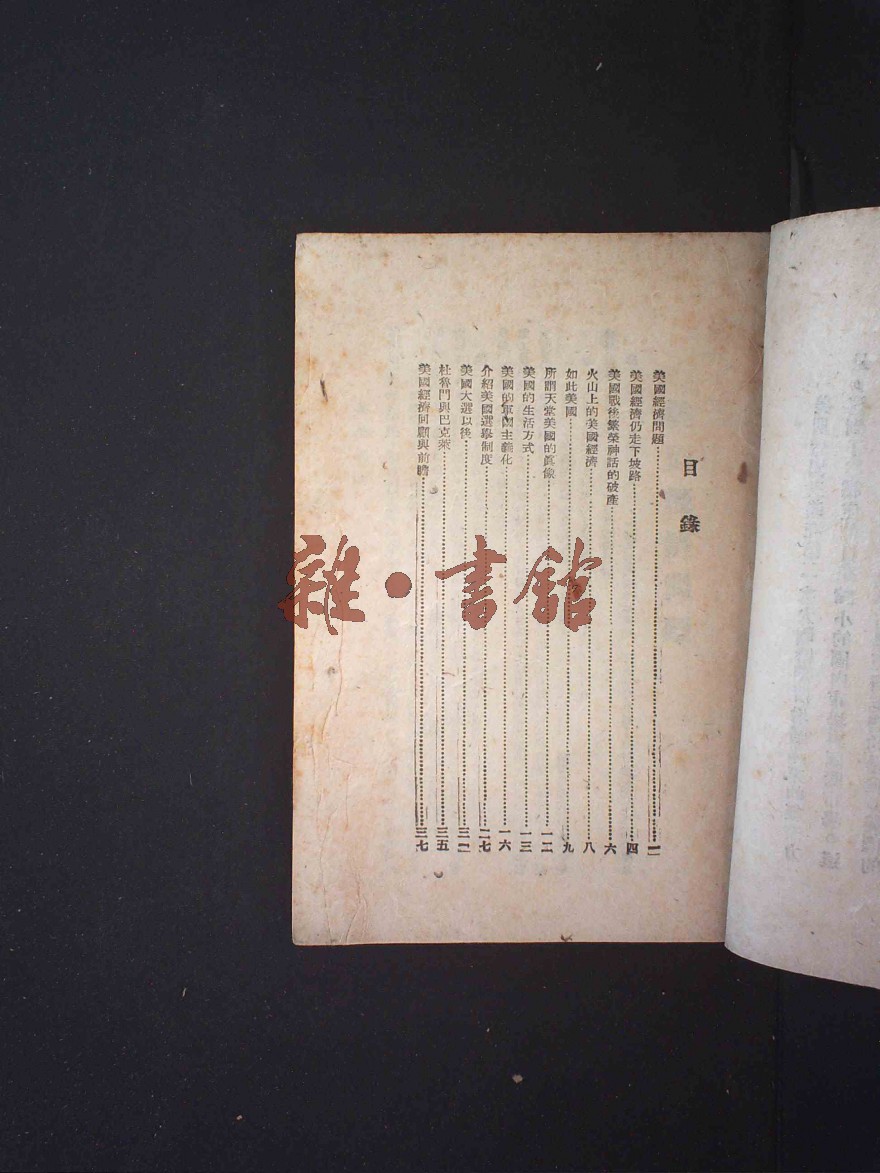 目錄
美國經濟問題……一
美國經濟仍走下坡路……四
美國戰後繁榮神話的破產……六
火山上的美國經濟……八
如此美國……九
所謂天堂美國的眞像……一二
美國的生活方式……一三
美國的軍國主義化……一六
介紹美國選舉制度……二七
美國大選以後……三一
杜魯門與巴克萊……三五
美國經濟回顧與前瞻……三七
雜·書館